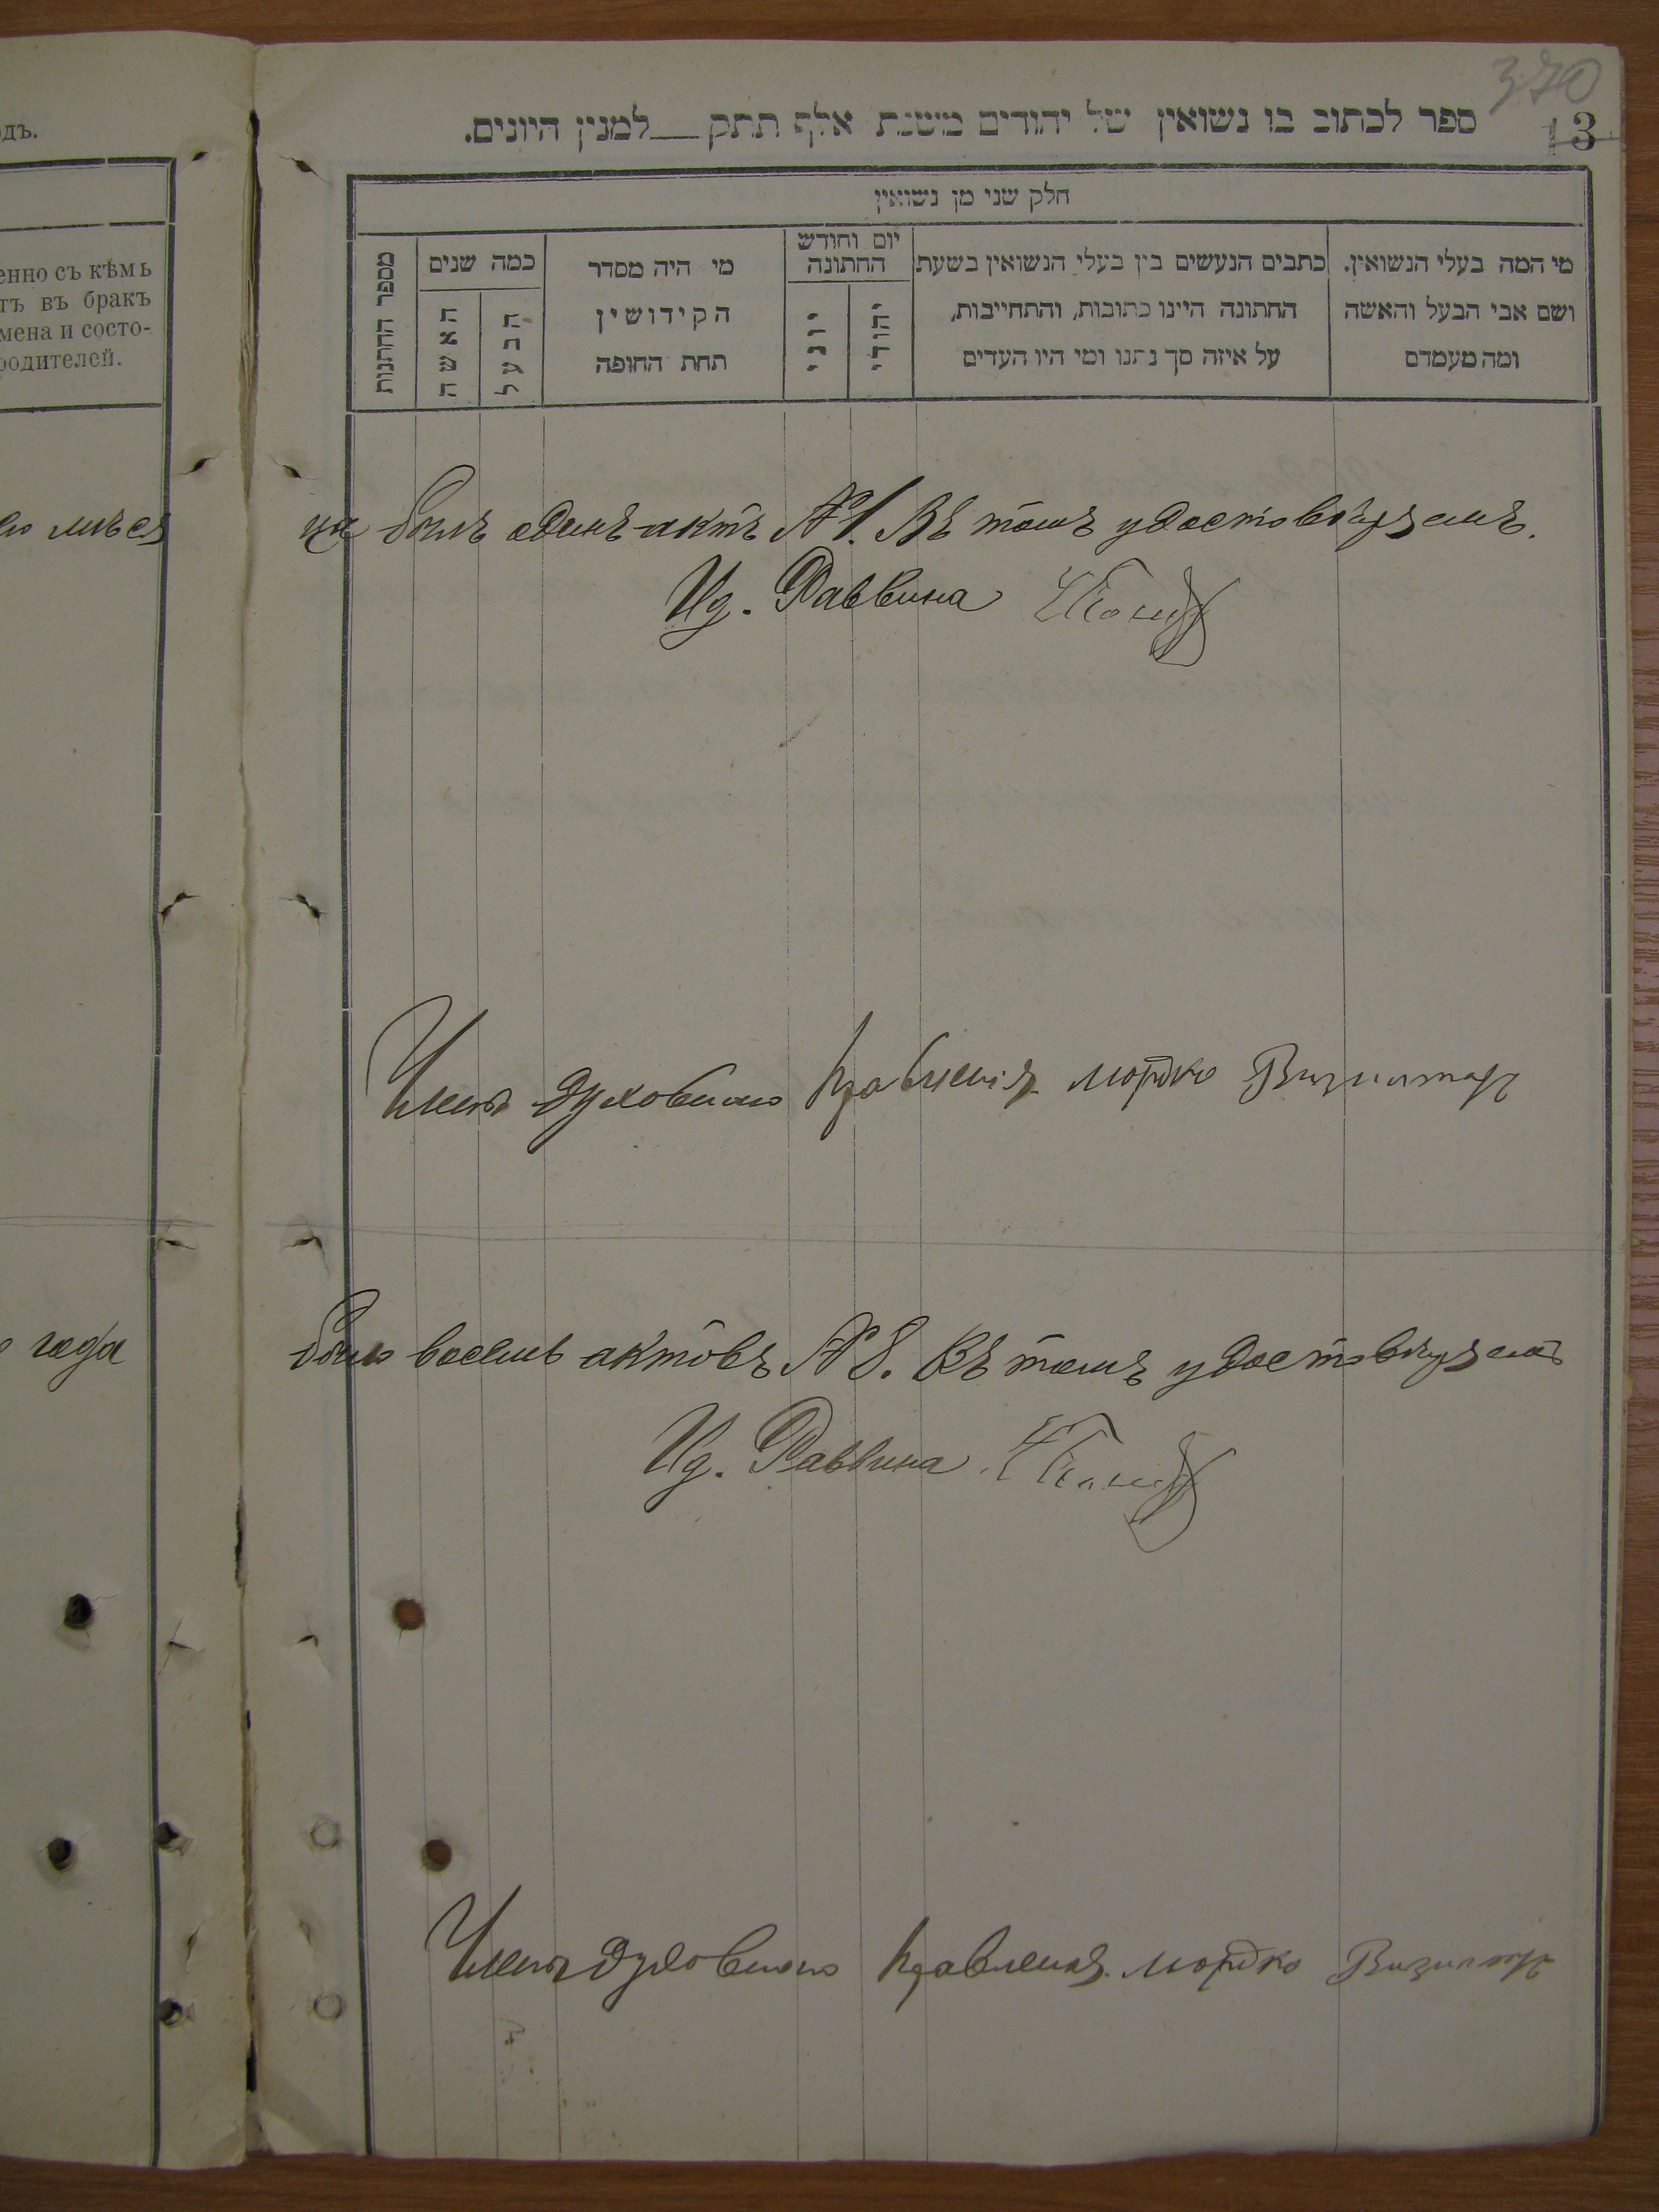 370
13
ספר לכתוב בו נשואין של יהודים משנת אלף תתק___למנין היונים.
חלק שני מן נשואין
מי המה בעלי הנשואין.
ושם אבי הבעל והאשה
ומה מעמדם
כתבים הנעשים בין בעלי הנשואין בשעת
החתונה היינו כתובות, והתחייבות,
על איזה סך נתנו ומי היו העדים
יום וחודש
החתונה
יהודי
יוני
מי היה מסדר
הקידושין
תחת החופה
כמה שנים
הבעל
האשה
מספר החתונות
одъ.
енно съ кѣмь
тъ въ бракъ
мена и состо-
родителей.
мѣся
ца былъ одинъ актъ № 1. Въ томъ удостовѣряемъ.
Ид. Раввина
Членъ духовнаго правленія Мордко Визилтеръ
года
было восемь актовъ № 8. Въ томъ удостовѣряемъ
Ид. Раввина
Членъ духовнаго правленія Мордко Визилтеръ